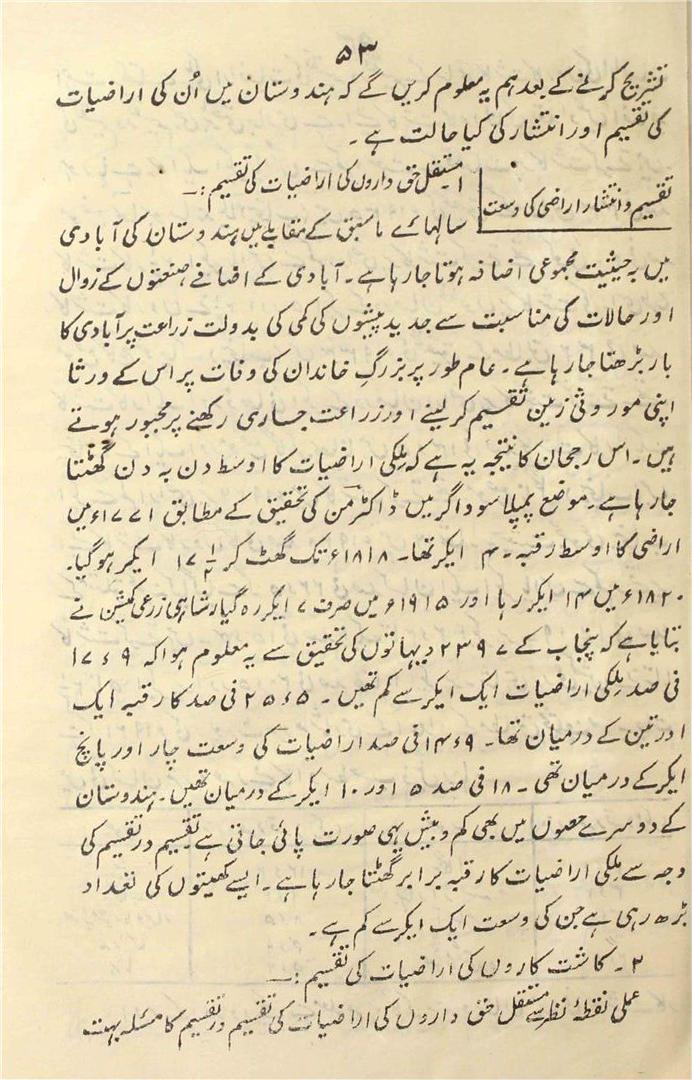 ۵۳
تشریح کرنے کے بعد ہم یہ معلوم کریں گے کہ ہندوستان میں اُن کی اراضیات
کی تقسیم اور انتشار کی کیا حالت ہے۔
تقسیم و انتشار اراضی کی وسعت
۱۔ مستقل حق داروں کی اراضیات کی تقسیم:۔
سالہائے ماسبق کے مقابلے میں ہندوستان کی آبادی
میں بہ حیثیت مجموعی اضافہ ہوتا جارہا ہے۔ آبادی کے اضافے صنعتوں کے زوال
اور حالات کی مناسبت سے جدید پیشوں کی کمی کی بدولت زراعت پر آبادی کا
بار بڑھتا جارہا ہے۔ عام طور پر بزرگِ خاندان کی وفات پر اس کے ورثا
اپنی موروثی زمین تقسیم کر لینے اور زراعت جاری رکھنے پر مجبور ہوتے
ہیں۔ اس رجحان کا نتیجہ یہ ہے کہ مِلکی اراضیات کا اوسط دن بہ دن گھٹتا
جارہا ہے۔ موضع پمپلا سوداگر میں ڈاکٹر من کی تحقیق کے مطابق ۱۷۷۱ء میں
اراضی کا اوسط رقبہ ۴۰ ایکر تھا۔ ۱۸۱۸ء تک گھٹ کر ۱۷ ۱/۲ ایکر ہوگیا۔
۱۸۲۰ء میں ۱۴ ایکر رہا اور ۱۹۱۵ء میں صرف ۷ ایکر رہ گیا۔ شاہی زرعی کمیشن نے
بتایا ہے کہ پنجاب کے ۲۳۹۷ دیہاتوں کی تحقیق سے یہ معلوم ہوا کہ ۱۷ء۹
فی صد مِلکی اراضیات ایک ایکر سے کم تھیں۔ ۲۵ء۵ فی صد کا رقبہ ایک
اور تین کے درمیان تھا۔ ۱۴ء۹ فی صد اراضیات کی وسعت چار اور پانچ
ایکر کے درمیان تھی۔ ۱۸ فی صد ۵ اور ۱۰ ایکر کے درمیان تھیں۔ ہندوستان
کے دوسرے حصوں میں بھی کم و بیش یہی صورت پائی جاتی ہے۔ تقسیم در تقسیم کی
وجہ سے مِلکی اراضیات کا رقبہ برابر گھٹتا جارہا ہے۔ ایسے کھیتوں کی تعداد
بڑھ رہی ہے جن کی وسعت ایک ایکر سے کم ہے۔
۲۔ کاشت کاروں کی اراضیات کی تقسیم:۔
عملی نقطۂ نظر سے مستقل حق داروں کی اراضیات کی تقسیم در تقسیم کا مسئلہ بہت